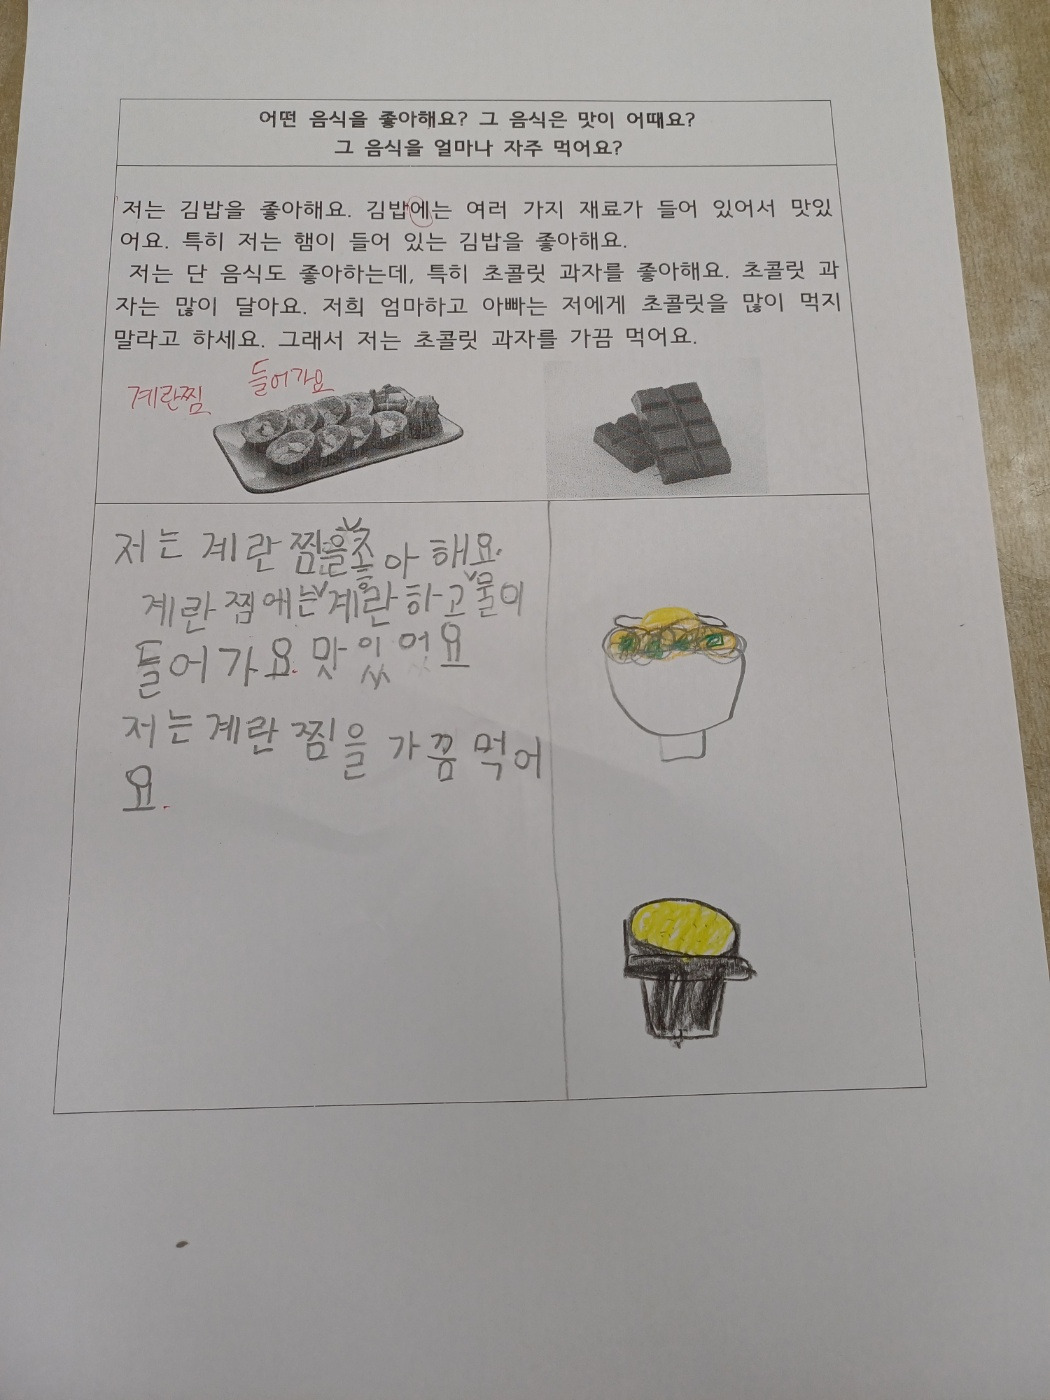 어떤 음식을 좋아해요? 그 음식은 맛이 어때요?
그 음식을 얼마나 자주 먹어요?
저는 김밥을 좋아해요. 김밥에는 여러 가지 재료가 들어 있어서 맛있
어요. 특히 저는 햄이 들어 있는 김밥을 좋아해요.
저는 단 음식도 좋아하는데, 특히 초콜릿 과자를 좋아해요. 초콜릿 과
자는 많이 달아요. 저희 엄마하고 아빠는 저에게 초콜릿을 많이 먹지
말라고 하세요. 그래서 저는 초콜릿 과자를 가끔 먹어요.
계란찜 들어가요
저는 계란찜을 좋아해요.
계란찜에는 계란하고 물이
들어가요. 맛있어요
저는 계란찜을 가끔 먹어
요.